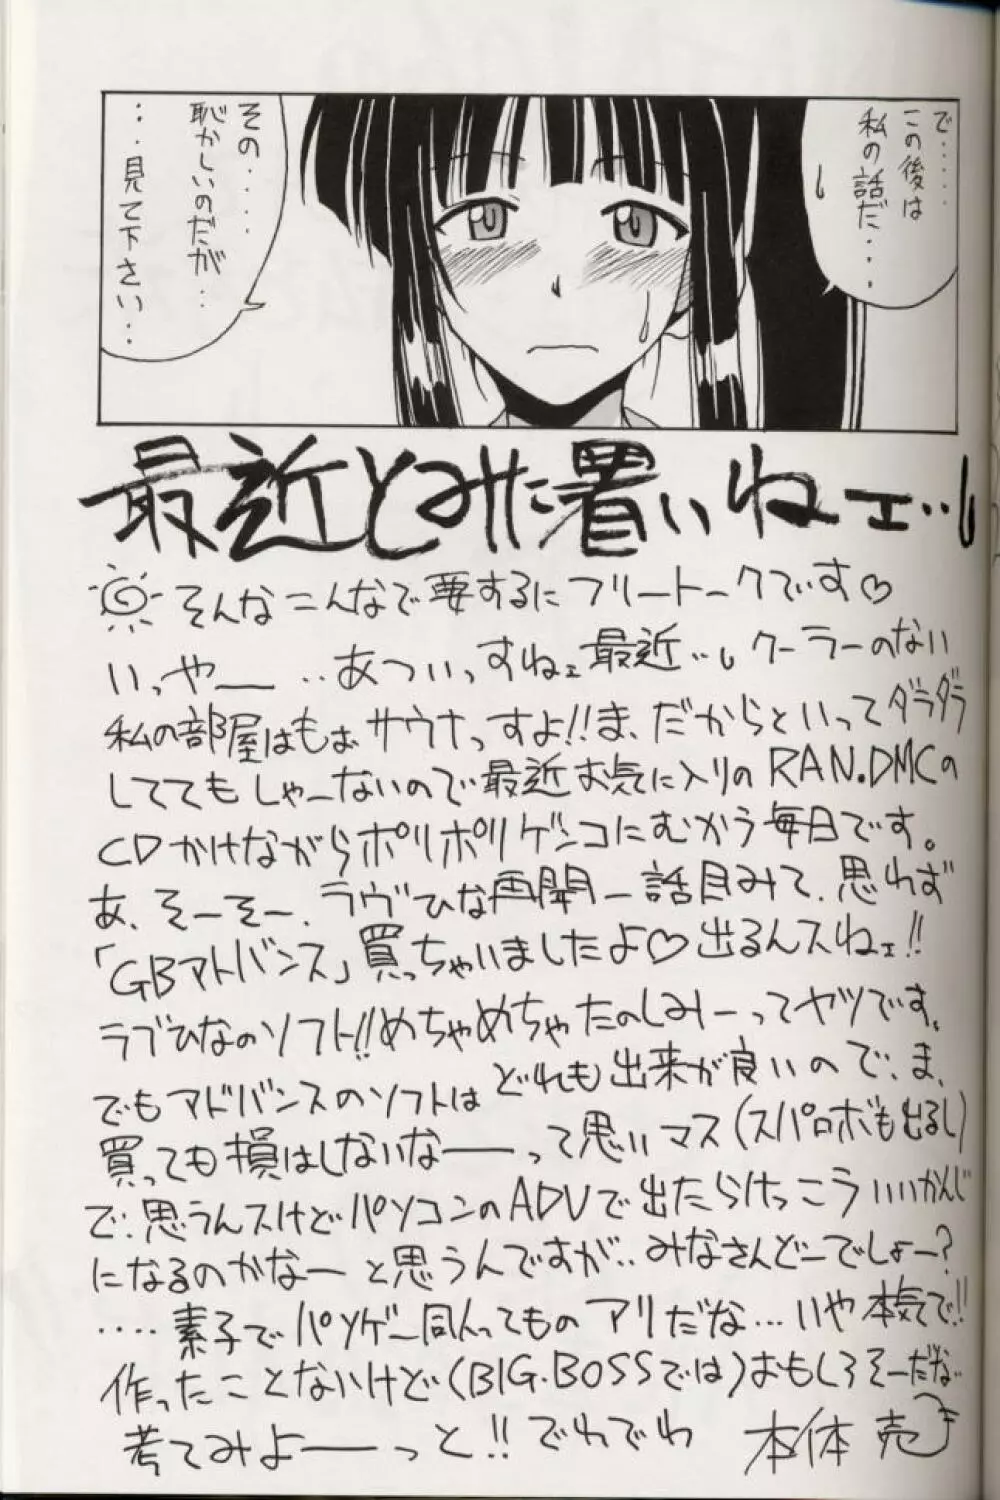 で‥‥‥
この後は
私の話だ・・・
その・・・・
恥かしいのだが‥
・・・見て下さい・・
最近とみに暑いねェ‥
そんなこんなで要するにフリートークです♡
いっやー‥あついっすねェ最近‥クーラーのない
私の部屋はもぉサウナっすよ!!ま、だからといってダラダラ
しててもしゃーないので最近お気に入りのRAN.DMCの
CDかけながらポリポリゲンコにむかう毎日です。
あ、そーそー、ラヴひな再開一話目みて、思わず
「GBアドバンス」買っちゃいましたよ♡出るんスねェ!!
ラブひなのソフト!!めちゃめちゃたのしみーってヤツです。
でもアドバンスのソフトはどれも出来が良いので、ま、
買っても損はしないなーって思いマス(スパロボも出るし)
で、思うんスけどパソコンのADVで出たらけっこういいかんじ
になるのかなーと思うんですが‥みなさんどーでしょー?
‥‥素子でパソゲー同人ってものアリだな…いや本気で!!
作ったことないけど(BIG.BOSSでは)おもしろそーだな
考てみよーっと!!でわでわ
本体 売